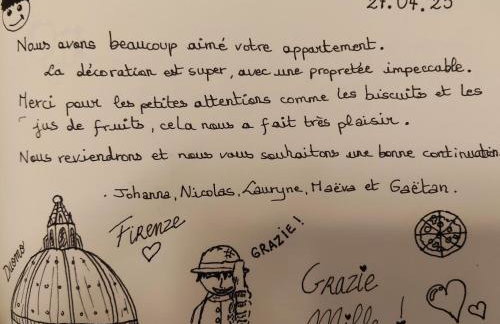 27.04.25
Nous avons beaucoup aimé votre appartement.
La décoration est super, avec une propretée impeccable.
Merci pour les petites attentions comme les biscuits et les
jus de fruits, cela nous a fait très plaisir.
Nous reviendrons et nous vous souhaitons une bonne continuation.
. Johanna, Nicolas, Lauryne, Maëva et Gaëtan.
Duomo
Firenze
GRAZIE !
Grazie
Mille !